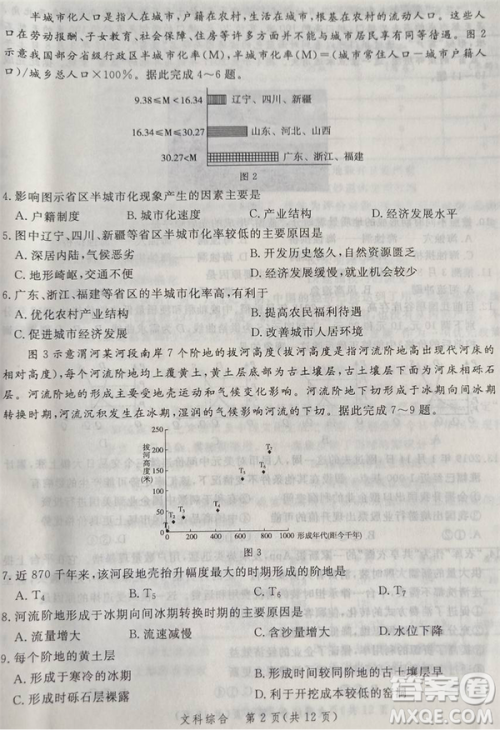 半城市化人口是指人在城市，户籍在农村，生活在城市，根基在农村的流动人口。这些人
口在劳动报酬、子女教育、社会保障、住房等许多方面不能与城市居民享有同等待遇。图 2
示意我国部分省级行政区半城市化率(M)，半城市化率(M)＝(城市常住人口－城市户籍
人口)/城乡总人口×100%。据此完成 4～6 题。
9.38≤M＜16.34 辽宁、四川、新疆
16.34≤M≤30.27 山东、河北、山西
30.27＜M 广东、浙江、福建
图 2
4. 影响图示省区半城市化现象产生的因素主要是
A. 户籍制度 B. 城市化速度 C. 产业结构 D. 经济发展水平
5. 图中辽宁、四川、新疆等省区半城市化率较低的主要原因是
A. 深居内陆，气候恶劣 B. 开发历史悠久，自然资源匮乏
C. 地形崎岖，交通不便 D. 经济发展缓慢，就业机会较少
6. 广东、浙江、福建等省区的半城市化率高，有利于
A. 优化农村产业结构 B. 提高农民福利待遇
C. 促进城市经济发展 D. 改善城市人居环境
图 3 示意渭河某河段南岸 7 个阶地的拔河高度(拔河高度是指阶地高出现代河床
的相对高度)，每个阶地均上覆黄土，黄土层底部为古土壤层，古土壤层下为河床相砾石
层。阶地的形成主要受地壳运动和气候变化影响。河流阶地形成于冰期向间冰期
转换时期，河流沉积发生在冰期，湿润的气候影响河流的下切。据此完成 7～9 题。
拔河高度(米)
250
200
150
100
50
0 200 400 600 800 1000 形成年代(距今千年)
图 3
7. 近 870 千年来，该河段地壳抬升幅度最大的时期形成的阶地是
A. T₄ B. T₅ C. T₆ D. T₇
8. 河流阶地形成于冰期向间冰期转换时期的主要原因是
A. 流量增大 B. 流速减慢 C. 含沙量增大 D. 水位下降
9. 每个阶地的黄土层
A. 形成于寒冷的冰期 B. 形成时间较同阶地的古土壤层早
C. 形成时砾石层裸露 D. 形成时间利于开挖成本较低的窑洞
文科综合 第 2 页(共 12 页)
答案圈